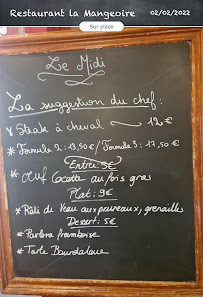 Restaurant la Mangeoire 02/02/2022
Sur place
Le Midi
La suggestion du chef:
* Steak à cheval 12€
* Formule 2: 13,50€ / Formule 3: 17,50€
Entrée: 5€
* Œuf Cocotte au fois gras
Plat: 9€
* Rôti de Veau aux poireaux, grenailles
Dessert: 5€
* Pavlova framboise
* Tarte Bourdaloue